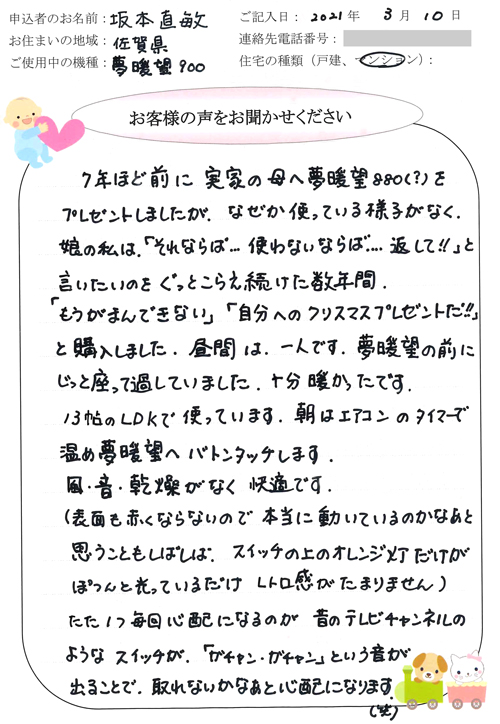 申込者のお名前：坂本直敏
ご記入日：2021年 3月 10日
お住まいの地域：佐賀県
連絡先電話番号：
ご使用中の機種：夢暖望900
住宅の種類（戸建、マンション）：
お客様の声をお聞かせください
7年ほど前に 実家の母へ夢暖望880(?)を
プレゼントしましたが、なぜか使っている様子がなく、
娘の私は、「それならば… 使わないならば… 返して!!」と
言いたいのを ぐっとこらえ続けた数年間.
「もうがまんできない」「自分へのクリスマスプレゼントだ!!」
と購入しました. 昼間は、一人です. 夢暖望の前に
じっと座って過していました. 十分暖かったです.
13帖のLDKで 使っています. 朝はエアコンのタイマーで
温め夢暖望へ バトンタッチします.
風・音・乾燥がなく 快適です.
(表面も赤くならないので 本当に動いているのかなあと
思うこともしばしば. スイッチの上のオレンジ灯だけが
ぽつんと光っているだけ レトロ感がたまりません)
ただ1つ毎回心配になるのが 昔のテレビチャンネルの
ような スイッチが、「ガチャン・ガチャン」という音が
出ることで、取れないかなあと心配になります.
(笑)